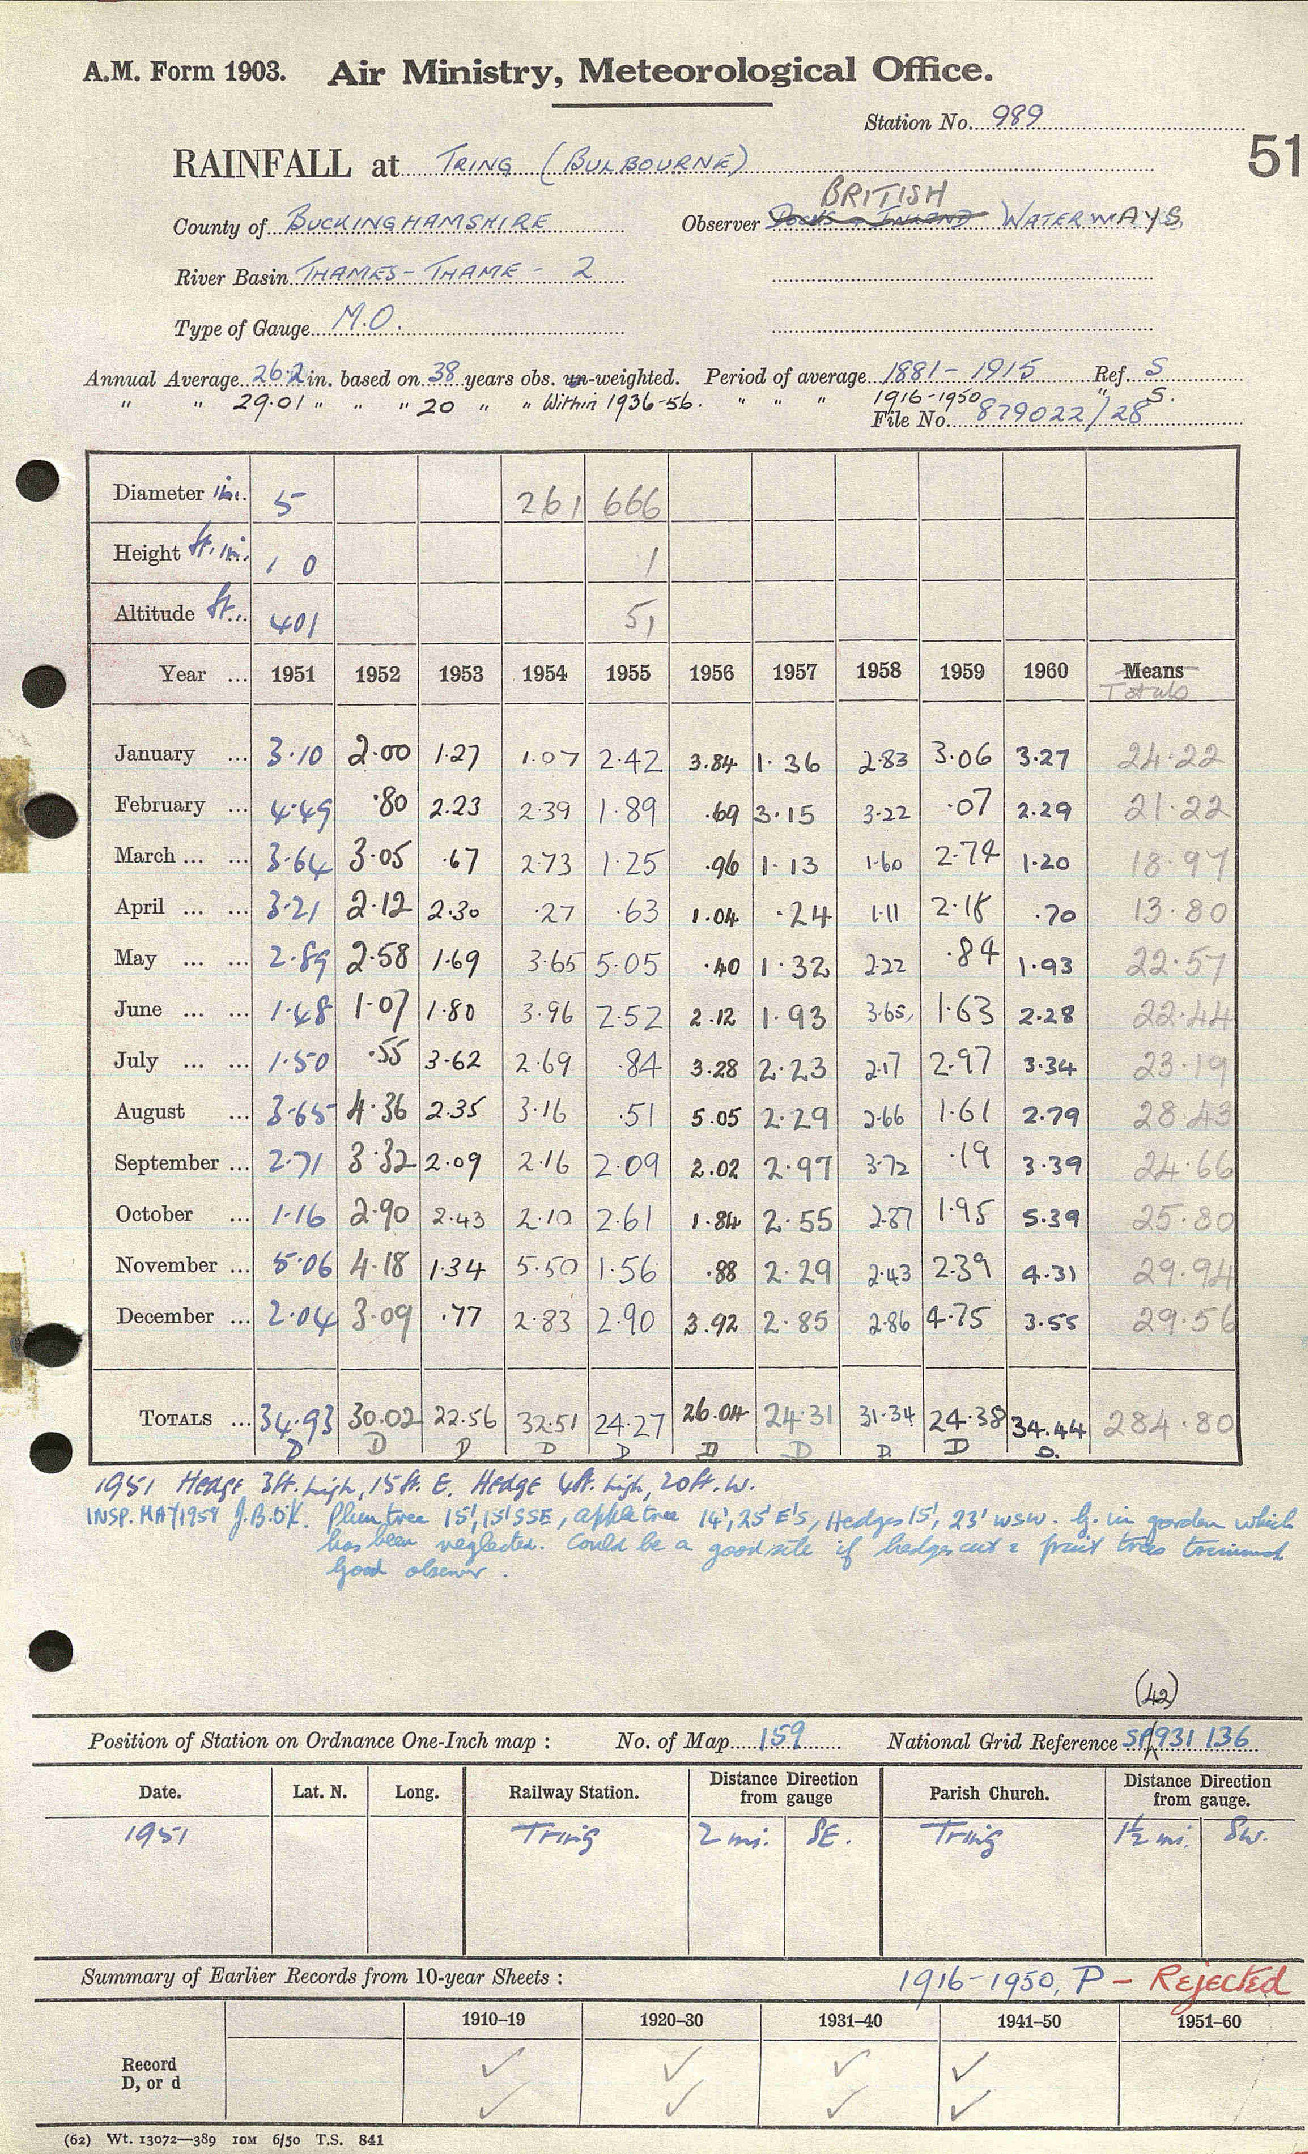 A.M. Form 1903. Air Ministry, Meteorological Office.
Station No. 989
51
RAINFALL at TRING (BULBOURNE)
BRITISH
County of BUCKINGHAMSHIRE Observer DOCKS & INLAND WATERWAYS
River Basin THAMES - THAME - 2
Type of Gauge M.O.
Annual Average 26.2 in. based on 38 years obs. un-weighted. Period of average 1881-1915 Ref. S
" " 29.01 " " " 20 " " Within 1936-56. " " " 1916-1950 " S.
File No. 879022/28
Diameter in. 5 261 666
Height ft. in. 1 0 1
Altitude ft. 401 51
Year ... 1951 1952 1953 1954 1955 1956 1957 1958 1959 1960 Means
Totals
January ... 3.10 2.00 1.27 1.07 2.42 3.84 1.36 2.83 3.06 3.27 24.22
February ... 4.49 .80 2.23 2.39 1.89 .69 3.15 3.22 .07 2.29 21.22
March ... ... 3.64 3.05 .67 2.73 1.25 .96 1.13 1.60 2.74 1.20 18.97
April ... ... 3.21 2.12 2.30 .27 .63 1.04 .24 1.11 2.18 .70 13.80
May ... ... 2.89 2.58 1.69 3.65 5.05 .40 1.32 2.22 .84 1.93 22.57
June ... ... 1.48 1.07 1.80 3.96 2.52 2.12 1.93 3.65 1.63 2.28 22.44
July ... ... 1.50 .55 3.62 2.69 .84 3.28 2.23 2.17 2.97 3.34 23.19
August ... 3.65 4.36 2.35 3.16 .51 5.05 2.29 2.66 1.61 2.79 28.43
September ... 2.71 3.32 2.09 2.16 2.09 2.02 2.97 3.72 .19 3.39 24.66
October ... 1.16 2.90 2.43 2.10 2.61 1.84 2.55 2.87 1.95 5.39 25.80
November ... 5.06 4.18 1.34 5.50 1.56 .88 2.29 2.43 2.39 4.31 29.94
December ... 2.04 3.09 .77 2.83 2.90 3.92 2.85 2.86 4.75 3.55 29.56
TOTALS ... 34.93 30.02 22.56 32.51 24.27 26.04 24.31 31.34 24.38 34.44 284.80
D D D D D D D D D D.
1951 Hedge 3ft. high, 15ft. E. Hedge 4ft. high, 20ft. W.
INSP. MAY 1958 J.B.O'K. Plum tree 15', 15' SSE, apple tree 14', 25' E'S, Hedges 15', 23' WSW. G. in garden which
has been neglected. Could be a good site if hedges cut & fruit trees trimmed
Good observer.
(42)
Position of Station on Ordnance One-Inch map : No. of Map 159 National Grid Reference SP 931 136
Date. Lat. N. Long. Railway Station. Distance Direction from gauge Parish Church. Distance Direction from gauge.
1951 Tring 2 mi. SE. Tring 1½ mi. SW.
Summary of Earlier Records from 10-year Sheets : 1916-1950, P - Rejected
1910–19 1920–30 1931–40 1941–50 1951–60
Record ✓ ✓ ✓ ✓
D, or d ✓ ✓ ✓ ✓
(62) Wt. 13072—389 IOM 6/50 T.S. 841